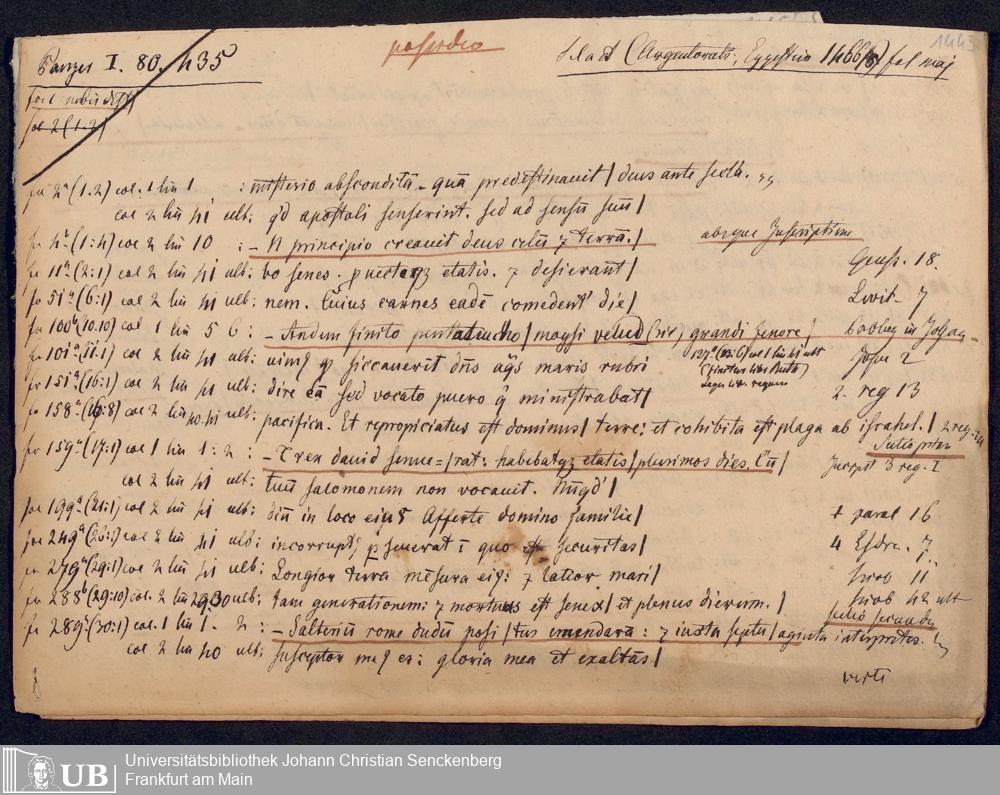 possideo
1443
Panzer I. 80. 435
s. l. a et d (Argentorati, Eggestein 1466(8)) fol maj
fol 2 (1.2)
fo 2a (1.2) col. 1 lin 1 : misterio absconditā. quā predestinauit / deus ante secla.
col 2 lin 41 ult: qd apostoli senserint. sed ad sensū suū /
(1:4) col 2 lin 10 : – N principio creauit deus celū ⁊ terrā. / absque Inscriptione
fo 11a (2:1) col 2 lin 41 ult: bo senes. prouecteqz etatis. ⁊ desierant / Genes. 18.
fo 51a (6:1) col 2 lin 41 ult: nem. Cuius carnes eadē comedent' die / Levit. 7
fo 100b (10.10) col 1 lin 5 6 : – Andem finito pentateucho / moysi velud (sic) grandi fenore / Prolog in Josua
fo 101a (11.1) col 2 lin 41 ult: uim qp siccauerit dns aqs maris rubri Josue 2
127a col 1 lin 41 ult
(finitus lib. Ruth)
fo 151a (16:1) col 2 lin 41 ult: dire eā sed vocato puero q̄ ministrabat / 2. reg 13
fo 158a (16:8) col 2 lin 40.41 ult: pacifica. Et repropiciatus est dominus / terre: et cohibita est plaga ab israhel. / 2 reg.
fo 159a (17:1) col 1 lin 1: 2 : – T rex dauid senue= / rat: habebatqz etatis / plurimos dies. Cū /
col 2 lin 41 ult: tuū salomonem non vocauit. 3 reg. I
fo 199a (21:1) col 2 lin 41 ult: diū in loco eius Afferte domino familie / 1 paral 16
fo 249a (26:1) col 2 lin 41 ult: incorrupt ī quo est securitas / 4 Esdre. 7
fo 279a (29:1) col 2 lin 41 ult: Longior terra mēsura eiq: ⁊ latior mari / Hiob 11
fo 288b (29:10) col. 2 lin 29.30 ult: tam generationem: ⁊ mortuus est senex / et plenus dierum. / Hiob 42 ult
fo 289a (30:1) col. 1 lin 1. 2 : – Salteriū rome dudū posi / tus emendarā: ⁊ iuxta septu / aginta interpretes.
col 2 lin 40 ult: susceptor meq es: gloria mea et exaltās /
verte
Universitätsbibliothek Johann Christian Senckenberg
Frankfurt am Main
UB